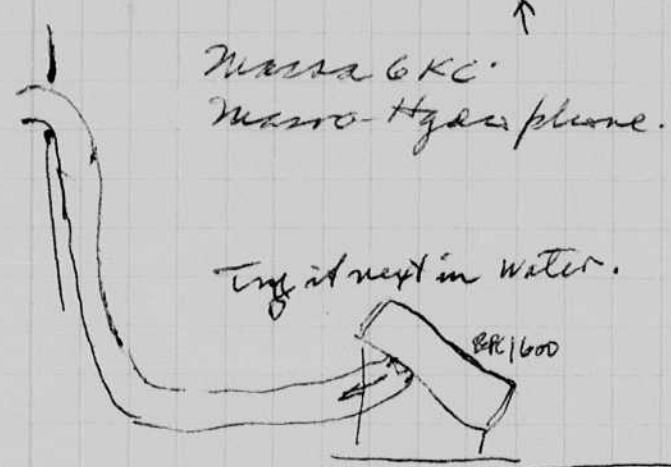 Massa 6 KC.
Massa-Hydrophone.
Try it next in water.